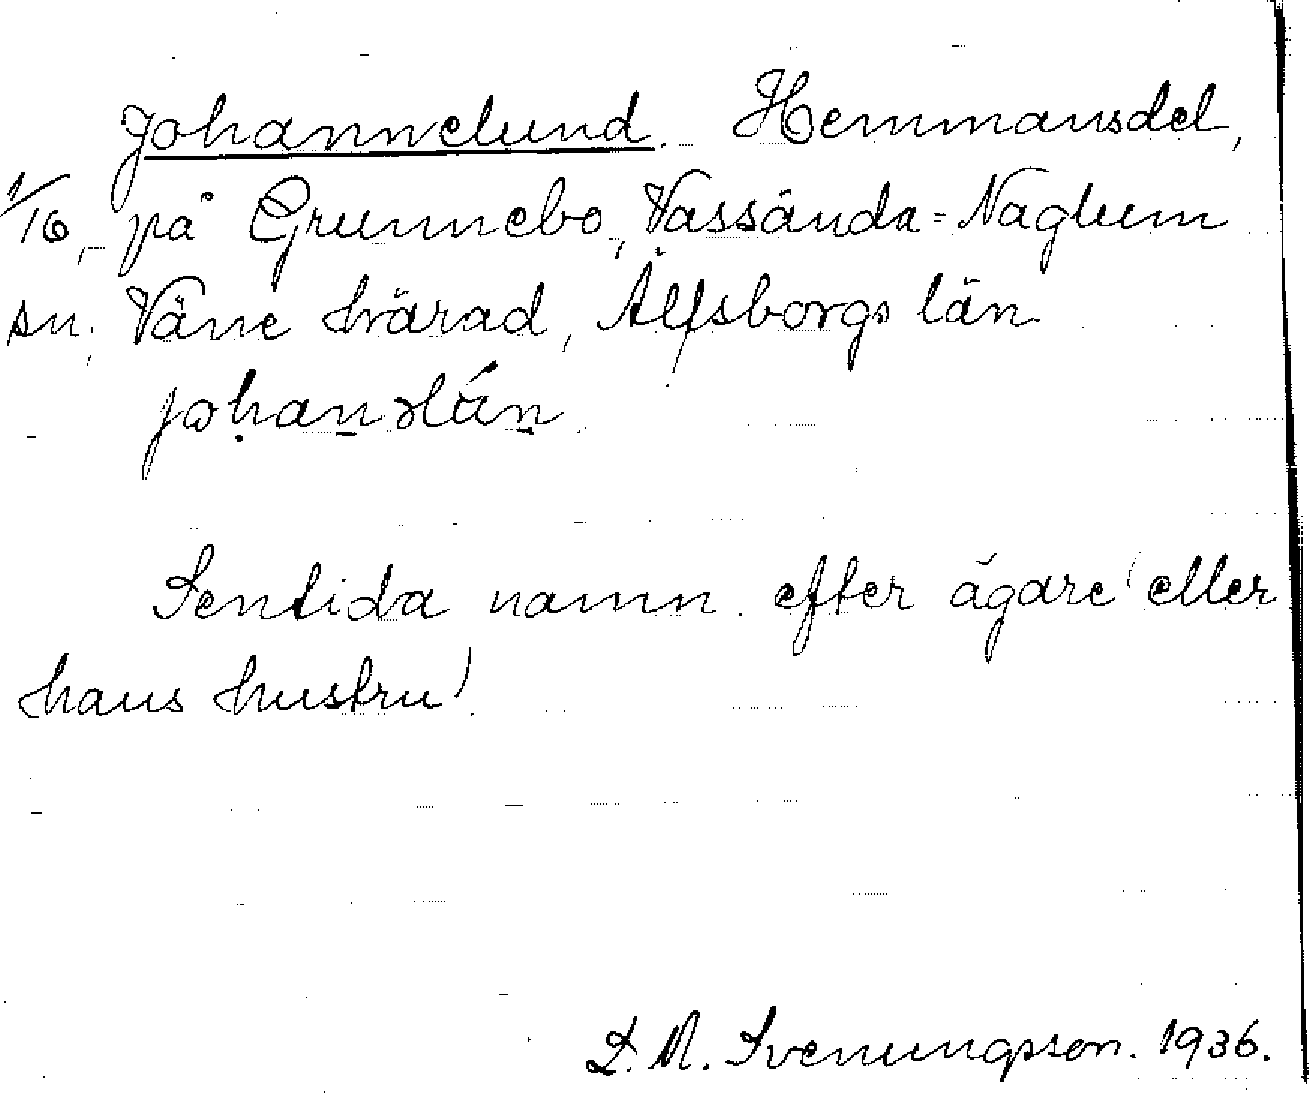 Johannelund. Hemmansdel,
1/16, på Grunnebo, Vassända-Naglum
sn, Väne härad, Älfsborgs län
Sentida namn efter ägare (eller
hans hustru)
L. M. Svenungsson. 1936.